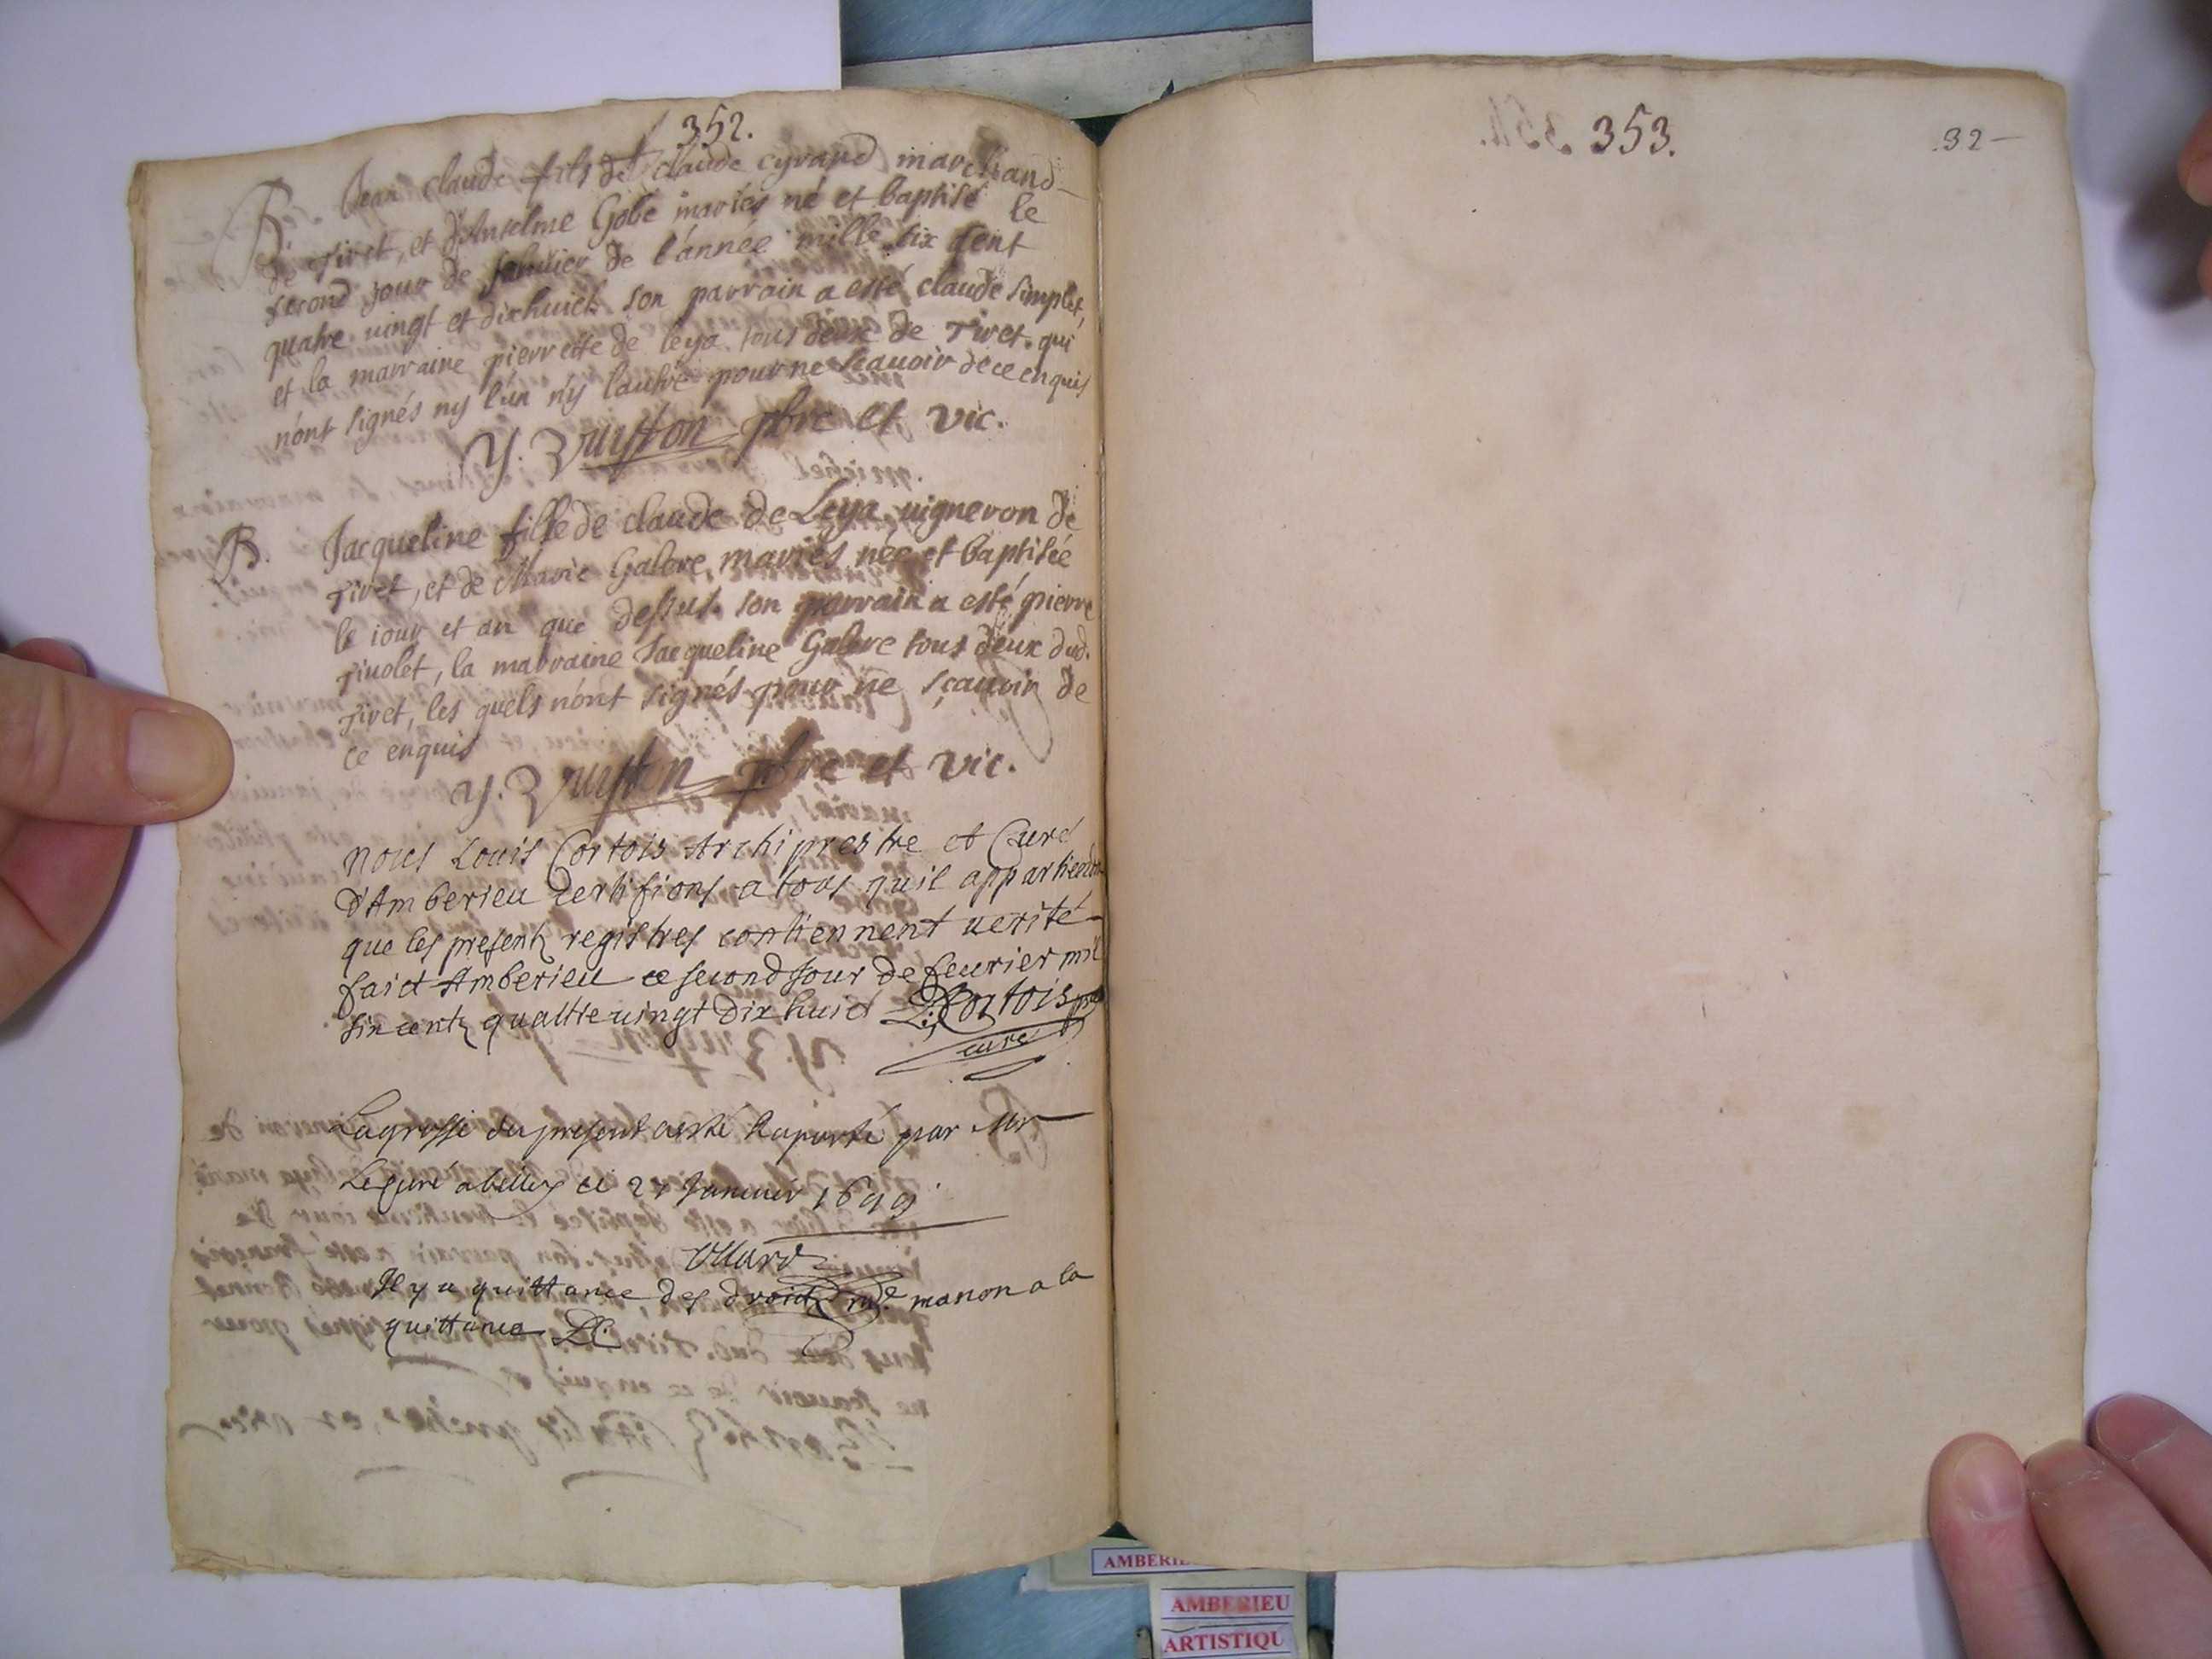 352.
B. Jean claude fils de claude cyraud marchand
de Tiret, et d'Anselme Gobe mariés né et baptisé le
second jour de febvrier de l'année mille six cent
quatre vingt et dixhuict son parrain a esté claude simplet,
et la marraine pierrette de leya tous deux de Tiret. qui
n'ont signés ny l'un n'y lautre pour ne scauoir de ce enquis
pbre et vic.
B. Jacqueline fille de claude de Leya uigneron de
Tiret, et de Marie Galore mariés née et baptisée
le iour et an que dessus. son parrain a esté pierre
Tiuolet, la marraine Jacqueline Galore tous deux dud.
Tiret, les quels n'ont signés pour ne sçauoir de
ce enquis
pbre et vic.
nous Louis Cortois Archiprestre et Curé
d'Amberieu certifions a tous qu'il appartiendra
que les presentz registres contiennent uerité
faict Amberieu ce second Jour de feurier mil
six centz quattre uingt dix huict L. Cortois
curé
La grosse du present a esté Raporté par Mr
Le Curé a belley ce 21 Januier 1699
Il y a quittance des droictz manon a la
quittance LC.
353.
32
AMBERIEU
ARTISTIQU